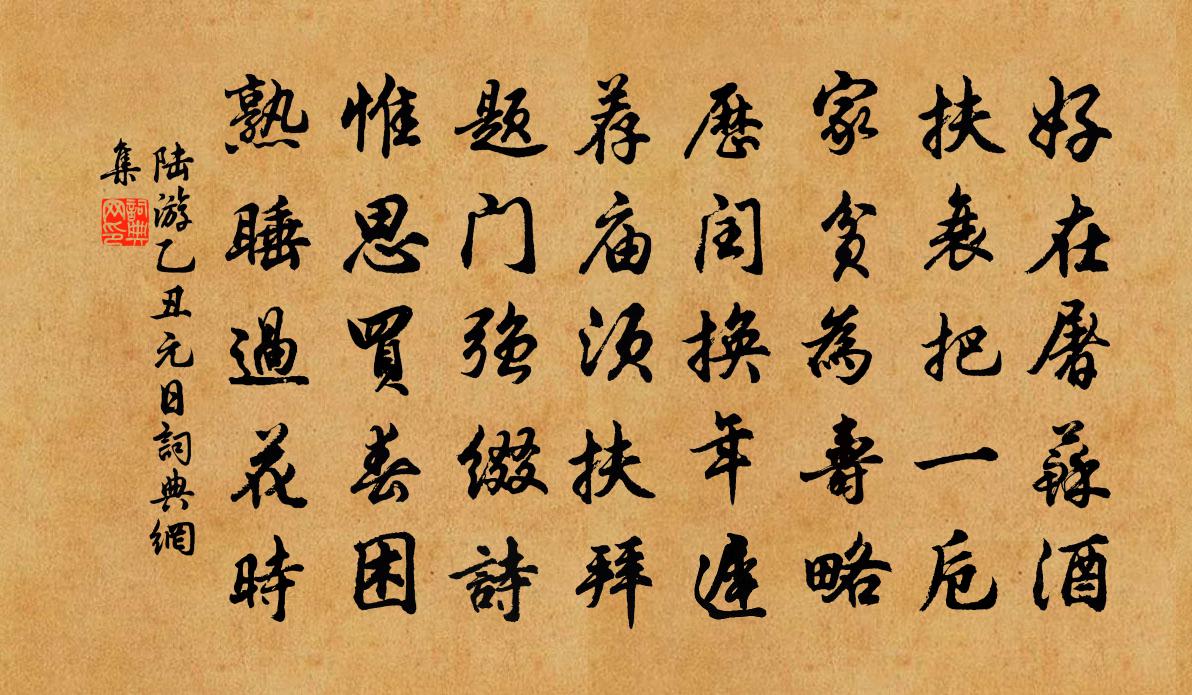 好在屠蘇酒
扶衰把一卮
家貧為壽略
歷閏換年遲
荐庙須扶拜
題门強綴詩
惟思買春困
熟睡過花時
陸游乙丑元日詞典網
集
詞典
网印